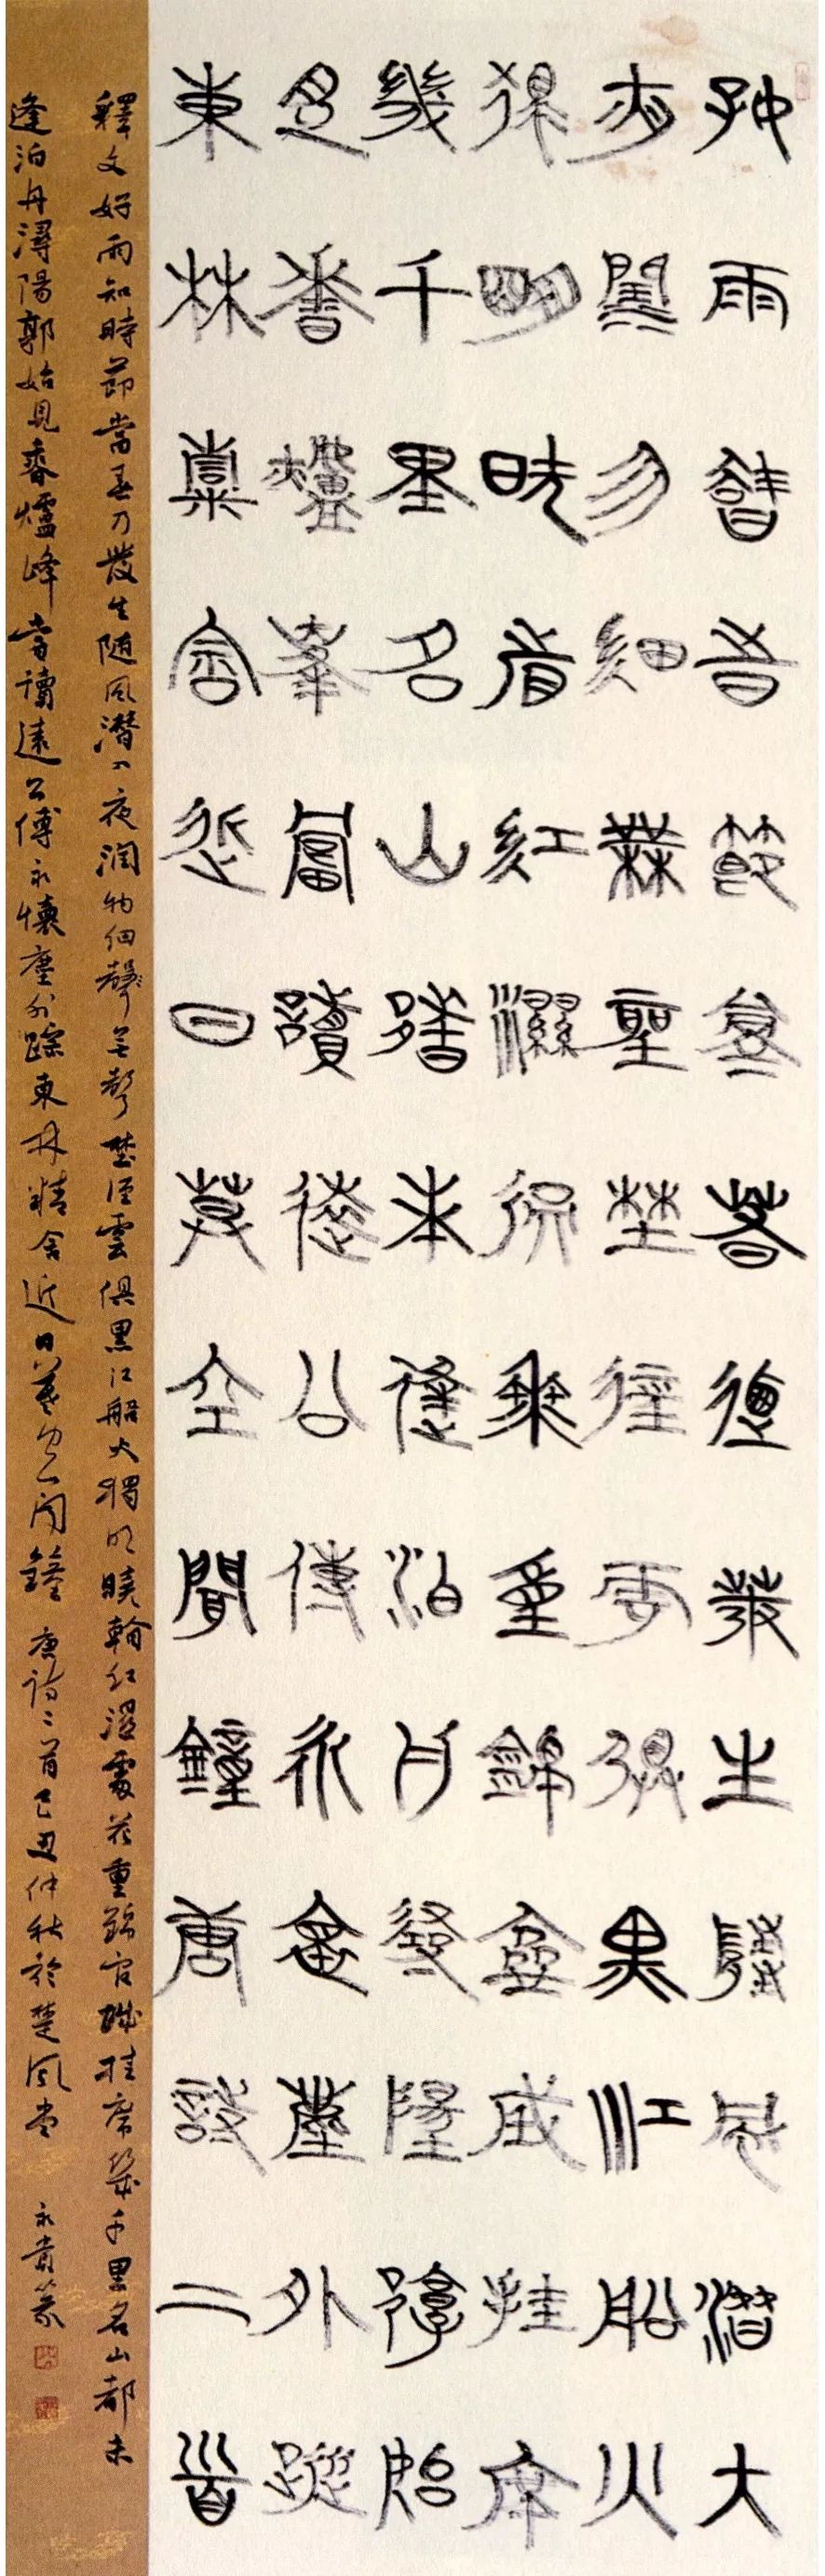 好雨智時節當春乃發生隨風潛入
夜潤勿細無聖野徑雲俱黑江船火
獨明曉看紅濕處花重錦官城挂席
幾千里名山都未逢泊舟潯陽郭始
見香爐峰嘗讀遠公傳永懷塵外蹤
東林精舍近日暮空聞鐘唐詩二首
釋文好雨知時節當春乃發生随風潛入夜潤物细聲無聲野徑雲俱黑江船火獨明曉看红濕處花重錦官城挂席幾千里名山都未
逢泊舟潯陽郭始見香爐峰嘗讀遠公傳永懷塵外踪東林精舍近日暮空聞鐘 唐詩二首己丑仲秋於楚風堂 永貴篆